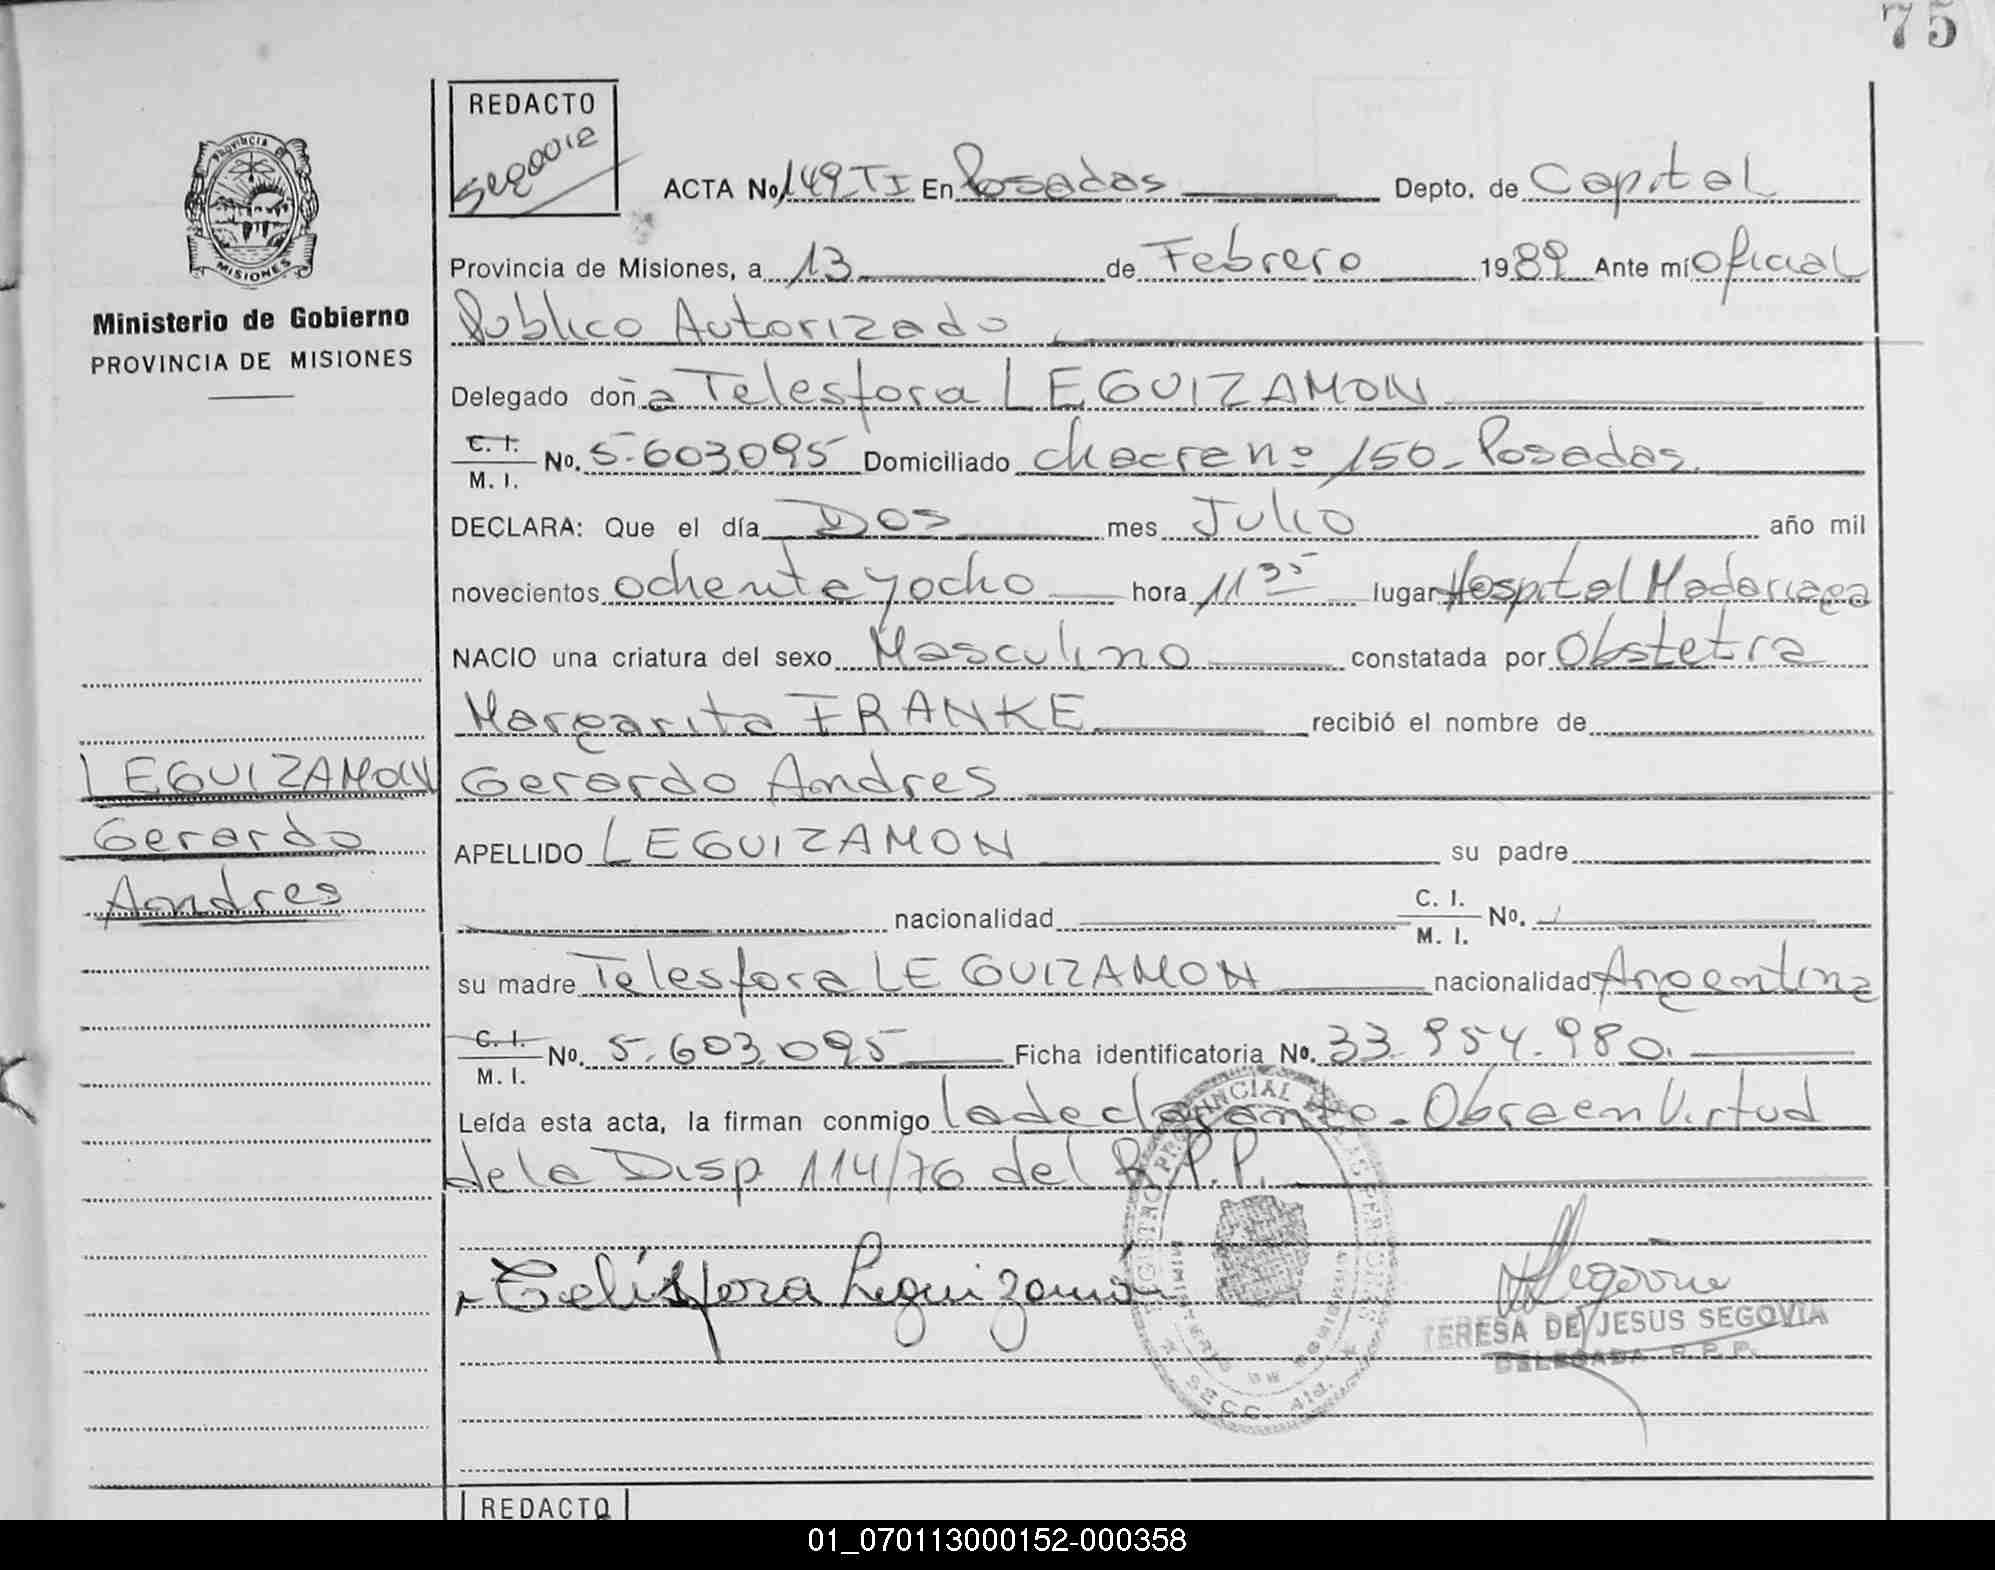 75
REDACTO
Segovia
PROVINCIA DE
MISIONES
Ministerio de Gobierno
PROVINCIA DE MISIONES
ACTA No. 149 TI En Posadas Depto. de Capital
Provincia de Misiones, a 13 de Febrero 1989 Ante mí Oficial
Publico Autorizado
Delegado doña Telesfora LEGUIZAMON
C. I.
M. I. No. 5.603.095 Domiciliado chacra nº 150 - Posadas.
DECLARA: Que el día Dos mes Julio año mil
novecientos ochenta y ocho hora 11 35 lugar Hospital Madariaga
NACIO una criatura del sexo Masculino constatada por Obstetra
Margarita FRANKE recibió el nombre de
Gerardo Andres
APELLIDO LEGUIZAMON su padre
nacionalidad C. I. M. I. No.
su madre Telesfora LEGUIZAMON nacionalidad Argentina
C. I.
M. I. No. 5.603.095 Ficha identificatoria No. 33.954.980.
Leída esta acta, la firman conmigo la declarante. Obra en Virtud
de la Disp 114/76 del R.P.P.
LEGUIZAMON
Gerardo
Andres
Telésfora Leguizamón
Segovia
TERESA DE JESUS SEGOVIA
DELEGADA R.P.P.
SECC. 4ta.
REDACTO
01_070113000152-000358